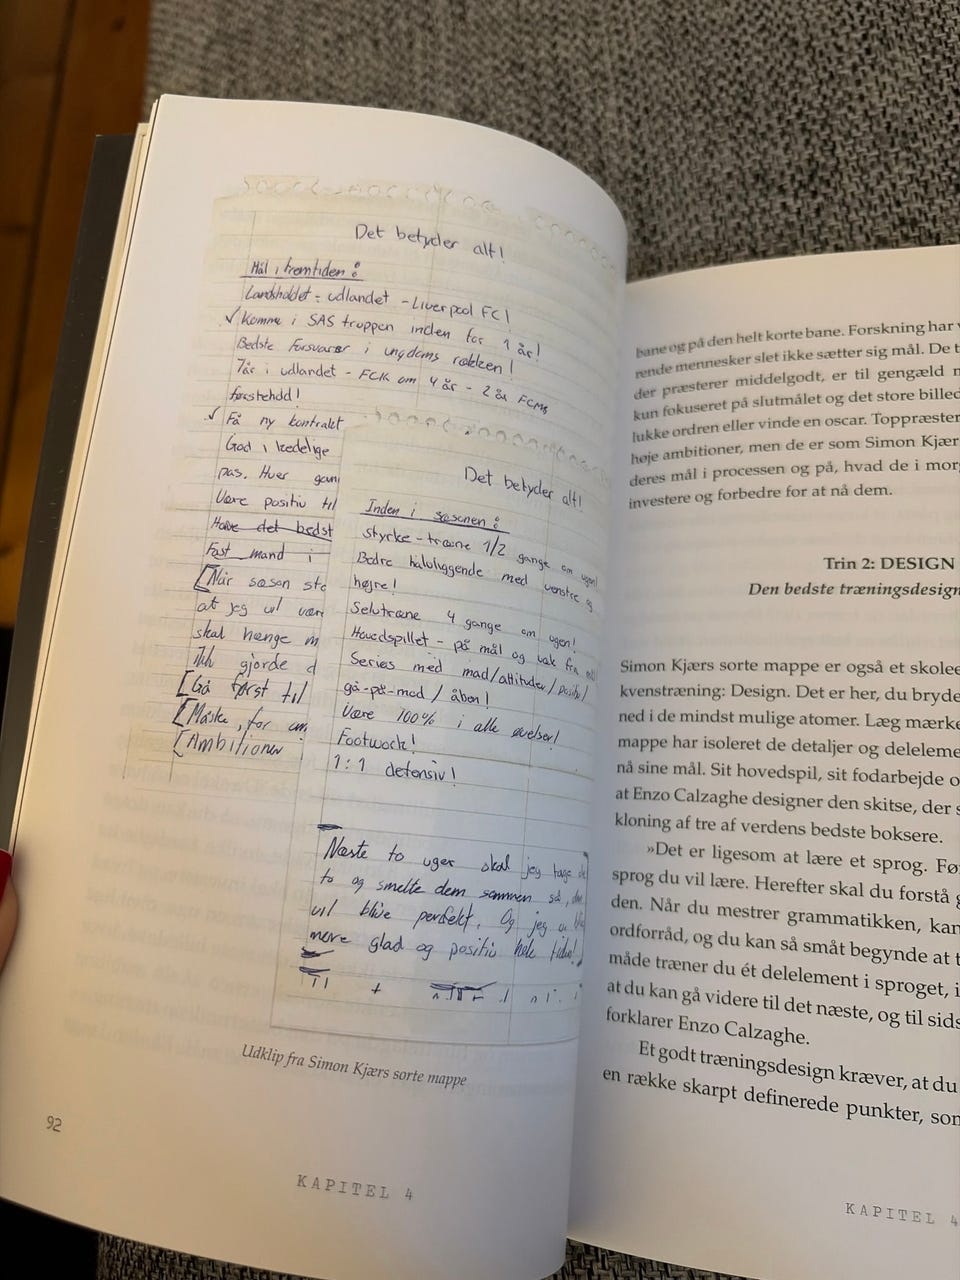 Det betyder alt!
Mål i fremtiden:
Landsholdet - udlandet - Liverpool FC!
✓ Komme i SAS truppen inden for 1 år!
Bedste forsvarer i ungdoms rækken!
7 år i udlandet - FCK om 4 år - 2 år FCMs
førstehold!
✓ Få ny kontrakt
God i kedelige
pas. Hver gan
Være positiv til
Have det bedst
Fast mand i
[Når sæson sta
at jeg vil vær
skal hænge m
Ikk gjorde d
[Gå først til
[Måske, for
[Ambitioner
Det betyder alt!
Inden i sæsonen:
Styrke-træne 1/2 gange om ugen!
Bedre halvliggende med venstre og
højre!
Selvtræne 4 gange om ugen!
Hovedspillet - på mål og væk fra
Seriøs med mad/attitude/positiv/
gå-på-mod/åben!
Være 100% i alle øvelser!
Footwork!
1:1 defensiv!
Næste to uger skal jeg tage de
to og smelte dem sammen så, den
vil blive perfekt. Og jeg vil
mere glad og positiv hele tiden!
Udklip fra Simon Kjærs sorte mappe
92
KAPITEL 4
bane og på den helt korte bane. Forskning har v
rende mennesker slet ikke sætter sig mål. De t
der præsterer middelgodt, er til gengæld m
kun fokuseret på slutmålet og det store billed
lukke ordren eller vinde en oscar. Toppræster
høje ambitioner, men de er som Simon Kjær
deres mål i processen og på, hvad de i mor
investere og forbedre for at nå dem.
Trin 2: DESIGN
Den bedste træningsdesign
Simon Kjærs sorte mappe er også et skolee
kvenstræning: Design. Det er her, du bryde
ned i de mindst mulige atomer. Læg mærke
mappe har isoleret de detaljer og deleleme
nå sine mål. Sit hovedspil, sit fodarbejde o
at Enzo Calzaghe designer den skitse, der s
kloning af tre af verdens bedste boksere.
»Det er ligesom at lære et sprog. Før
sprog du vil lære. Herefter skal du forstå g
den. Når du mestrer grammatikken, kan
ordforråd, og du kan så småt begynde at t
måde træner du ét delelement i sproget, i
at du kan gå videre til det næste, og til sids
forklarer Enzo Calzaghe.
Et godt træningsdesign kræver, at du
en række skarpt definerede punkter, som
KAPITEL 4